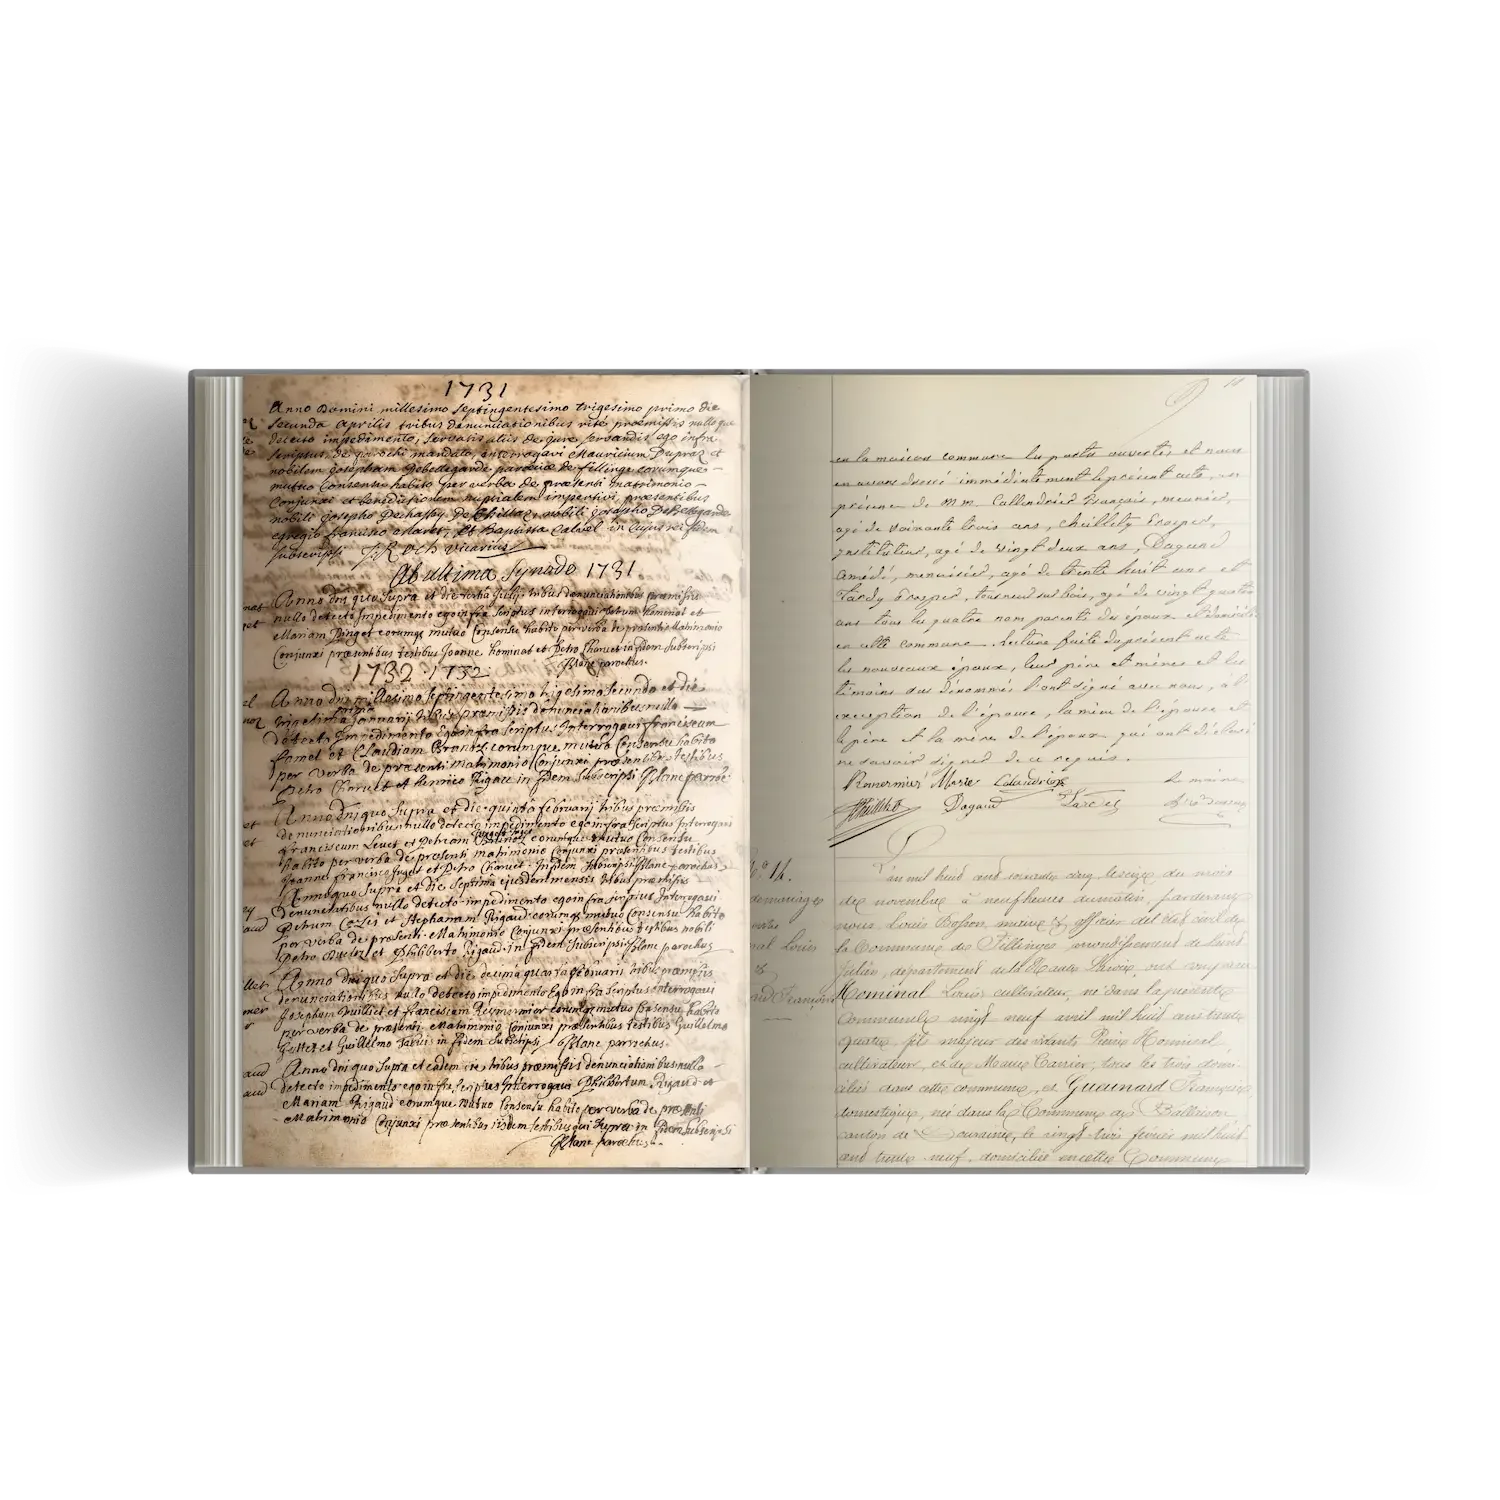 1731
Anno Domini millesimo septingentesimo trigesimo primo die
secunda aprilis tribus denunciationibus rite præmissis nullo que
detecto impedimento, servatis aliis de jure servandis ego infra
scriptus de parochi mandato, interrogavi Mauricium Dupraz et
nobilem Josepham de parociæ de fillinge eorumque
mutuo Consensu habito per verba de præsenti matrimonio
Conjunxi et benedictionem nuptialem impertivi, præsentibus
nobili Josepho Dechassey de nobili Josepho
egregio francisco et Baptista in Cujus rei fidem
subscripsi Roch vicarius
Ab ultima Synodo 1731
Anno dni quo supra et die tertia Julij tribus denunciationibus præmissis
nullo detecto impedimento ego infra scriptus interrogavi Petrum Hominal et
Mariam Pinget eorumq mutuo Consensu habito per verba de præsenti Matrimonio
Conjunxi præsentibus testibus Joanne hominal et Petro Charvet in fidem subscripsi
Blanc parochus.
1732 1732
Anno dni millesimo septingentesimo trigesimo secundo et die
trigesima prima Januarij tribus præmissis denunciationibus nullo
detecto Impedimento ego infra Scriptus Interrogavi franciscum
et Claudiam eorumque mutuo Consensu habito
per verba de præsenti matrimonio Conjunxi præsentibus testibus
Petro Charvet et henrico Rigaud in fidem subscripsi Blanc paroc
Anno dni quo supra et die quinto februarij tribus præmissis
denunciationibus nullo detecto impedimento ego infra Scriptus Interrogavi
franciscum et Petronam eorumque mutuo Consensu
habito per verba de præsenti matrimonio Conjunxi præsentibus testibus
Joanne francisco Juget et Petro Charvet In fidem subscripsi Blanc parochus
Anno quo supra et die Septima ejusdem mensis tribus præmissis
Denunciatibus nullo detecto impedimento ego infra scriptus Interrogavi
Petrum et Stephanam Rigaud eorumq mutuo Consensu habito
per verba de præsenti Matrimonio Conjunxi præsentibus testibus nobili
Petro et Philiberto Rigaud in fidem subscripsi Blanc parochus
Anno dni quo supra et die decima quarta februarii tribus præmissis
denunciationibus nullo detecto impedimento Ego infra Scriptus interrogavi
Josephum Vuilliet et franciscam Reymermer eorumq mutuo Consensu habito
per verba de præsenti Matrimonio Conjunxi præsentibus testibus Guillelmo
et Guillelmo in fidem Subscripsi Blanc parrochus.
Anno dni quo supra et eadem die tribus præmissis denunciationibus nullo
detecto impedimento ego infra Scriptus Interrogavi Philibertum Rigaud et
Mariam Rigaud eorumque mutuo Consensu habito per verba de præsenti
Matrimonio Conjunxi præsentibus iisdem testibus qui supra in fidem subscripsi
Blanc parochus.
en la maison commune les portes ouvertes et nous
en avons dressé immédiatement le présent acte, en
présence de MM. Callendrier François, meunier,
agé de soixante trois ans, Cheillety Prosper,
instituteur, agé de vingt deux ans, Dagand
Amédé, menuisier, agé de trente huit ans et
Tardy Prosper, tourneur sur bois, agé de vingt quatre
ans tous les quatre non parents des époux et domiciliés
en cette commune. Lecture faite du présent acte
les nouveaux époux, leur père et mères et les
témoins sus dénommés l'ont signé avec nous, à l'
exception de l'épouse, la mère de l'épouse et
le père et la mère de l'époux qui ont déclaré
ne savoir signer de ce requis.
Marie
Dagand
Le maire
N° 14.
de mariage
entre
Louis
&
François
L'an mil huit cent soixante cinq le seize du mois
de novembre à neuf heures du matin, pardevant
nous Louis Bosson, maire & officier de l'état civil de
la Commune de Fillinges arrondissement de Saint
Julien, département de la Haute Savoie, ont comparu
Hominal Louis cultivateur, né dans la présente
Commune le vingt neuf avril mil huit cent trente
quatre fils majeur des vivants Pierre Hominal
cultivateur, et de Carrier, tous les trois domi
ciliés dans cette commune, et Gueinard Françoise
domestique, née dans la Commune de Ballaison
canton de Douvaine, le vingt trois février mil huit
cent trente neuf, domiciliée en cette Commune